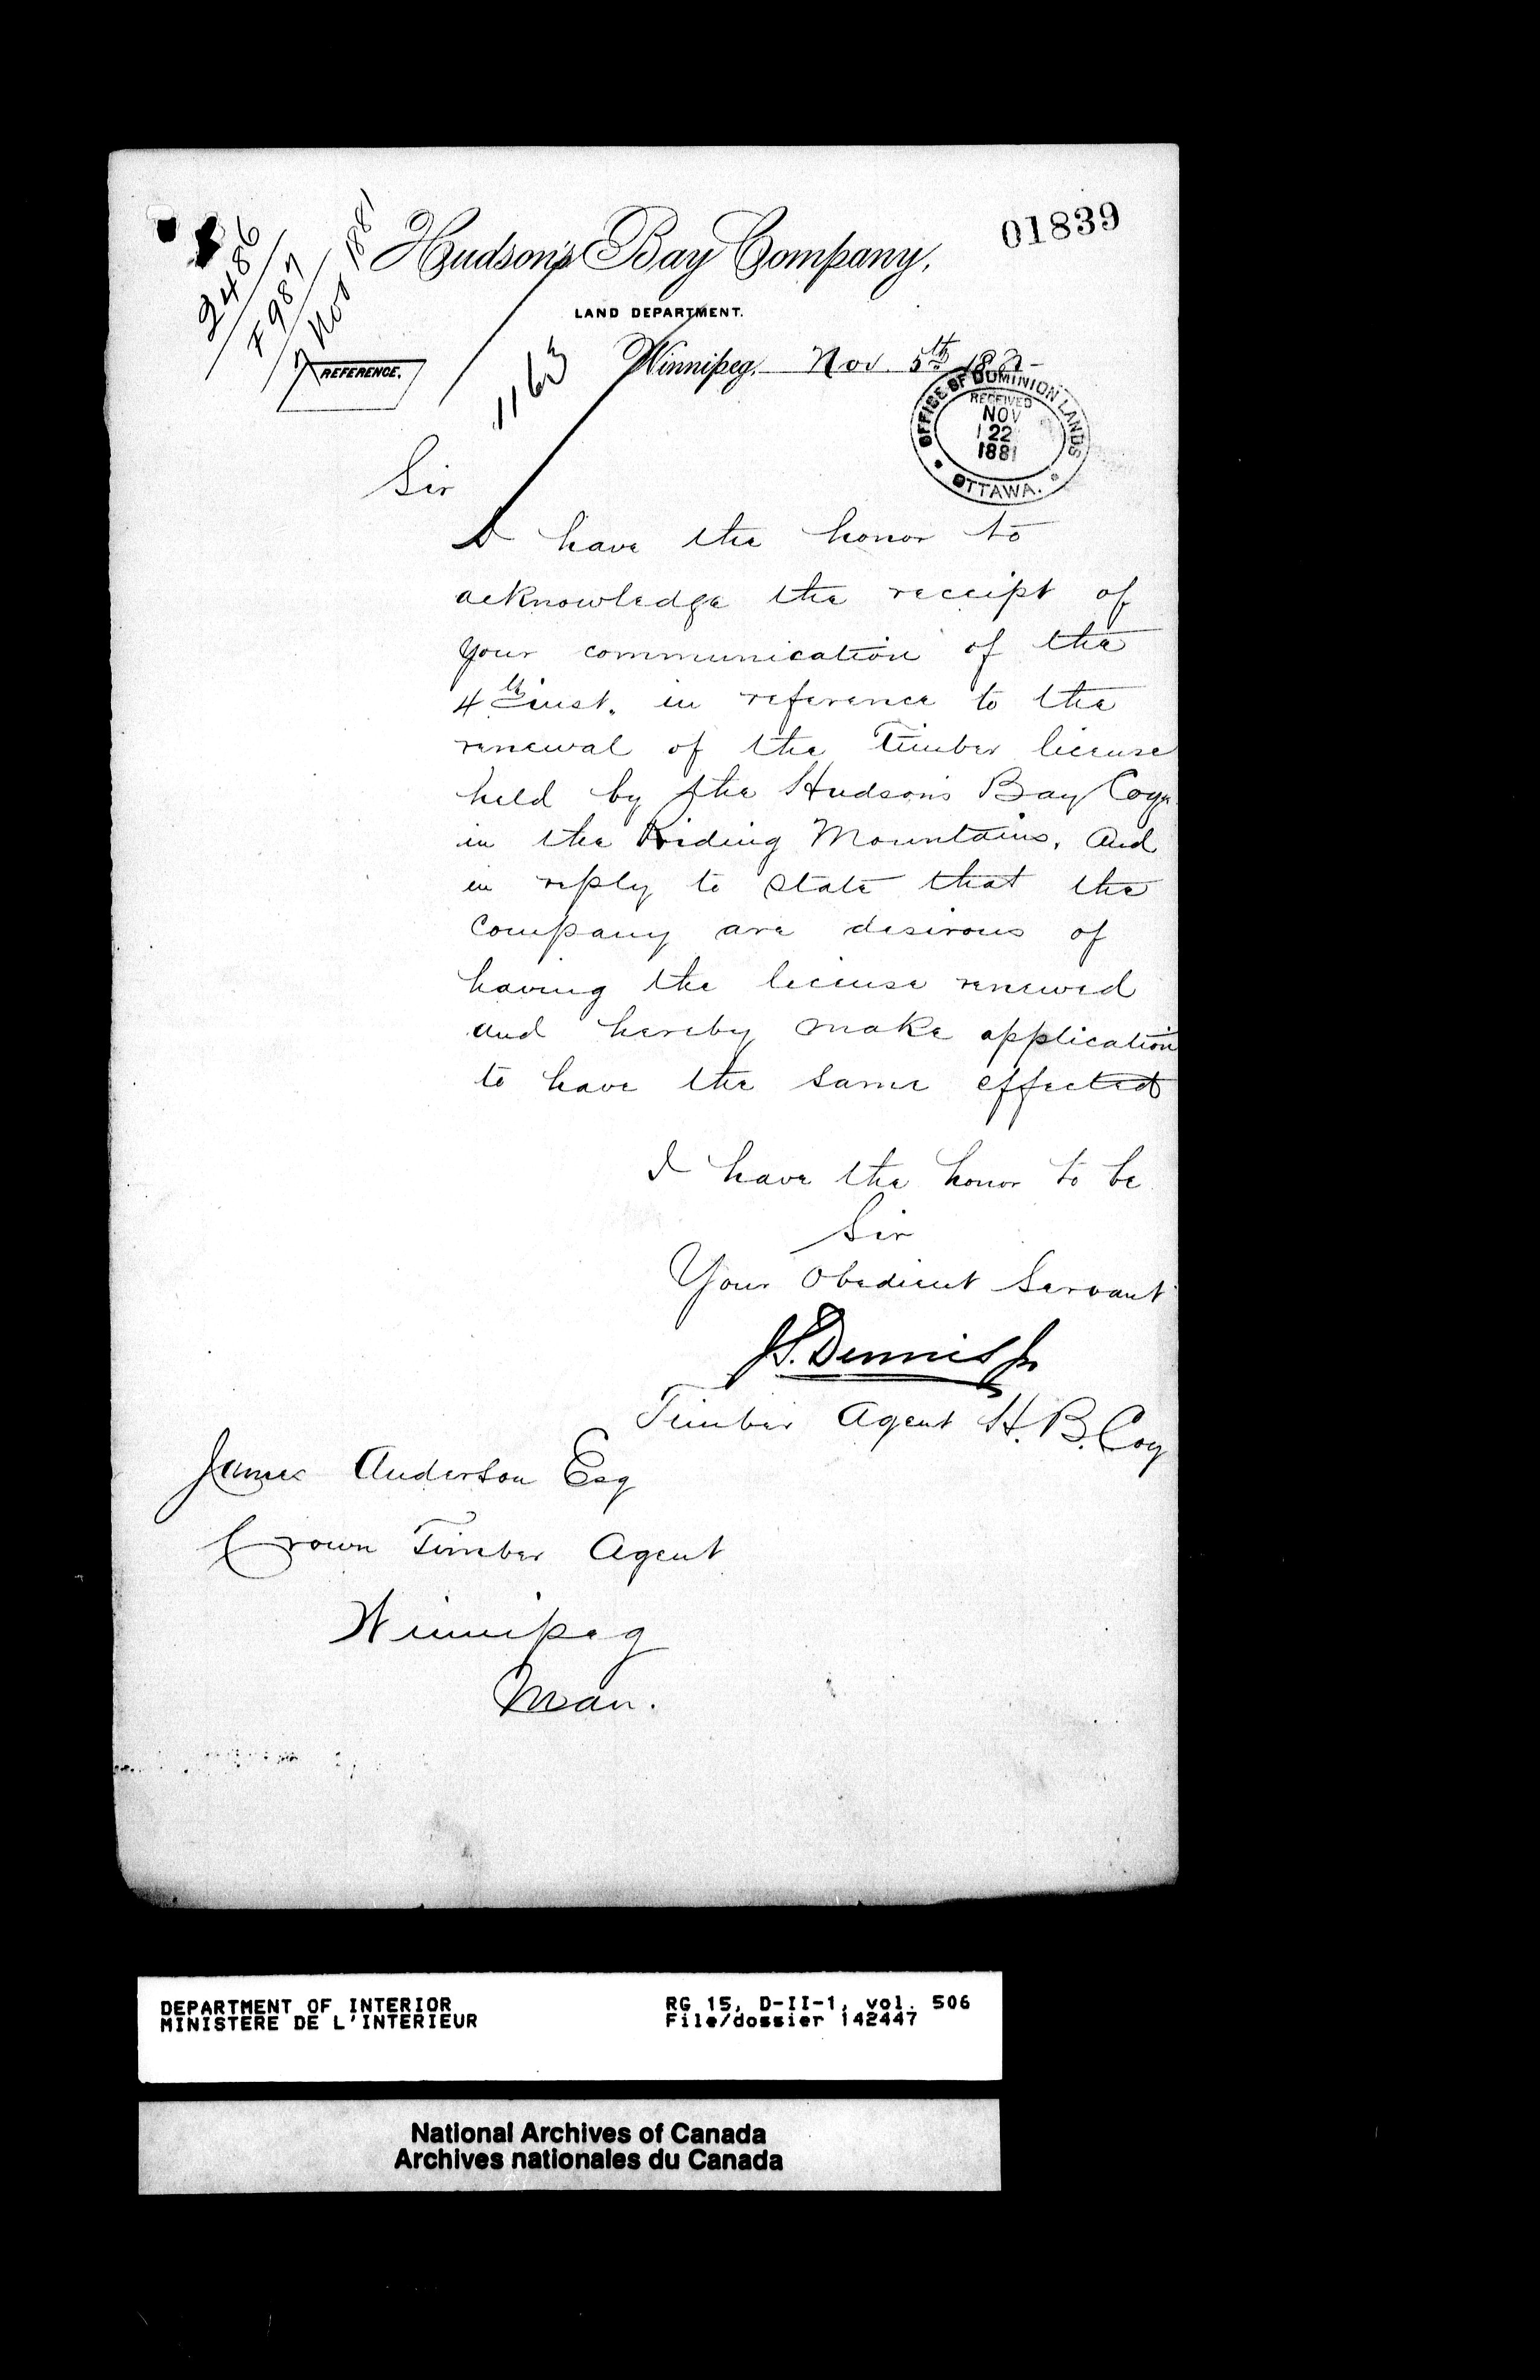 01839
2486
F987
7 Nov 1881
Hudson's Bay Company,
LAND DEPARTMENT.
REFERENCE.
1163
Winnipeg, Nov. 5th 188
OFFICE OF DOMINION LANDS
RECEIVED
NOV
22
1881
OTTAWA.
Sir
I have the honor to
acknowledge the receipt of
your communication of the
4th inst. in reference to the
renewal of the Timber license
held by the Hudson's Bay Coy
in the Riding Mountains, and
in reply to state that the
Company are desirous of
having the license renewed
and hereby make application
to have the same effected
I have the honor to be
Sir
Your Obedient Servant
J.S. Dennis Jr
Timber Agent H.B. Coy
James Anderson Esq
Crown Timber Agent
Winnipeg
Man.
DEPARTMENT OF INTERIOR
MINISTERE DE L'INTERIEUR
RG 15, D-II-1, vol. 506
File/dossier 142447
National Archives of Canada
Archives nationales du Canada